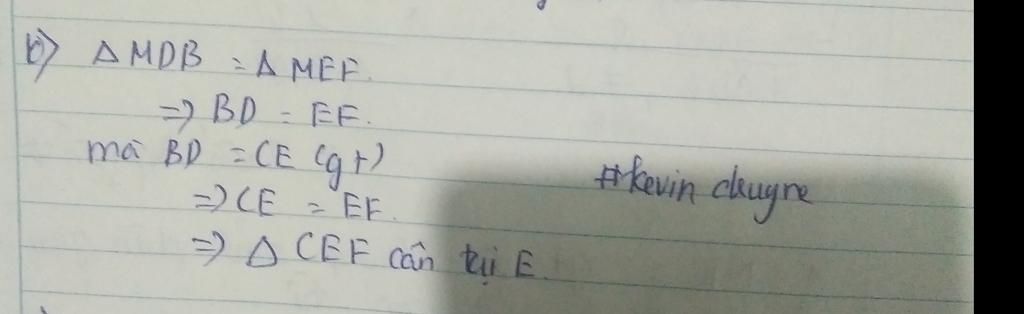 b) Δ MDB = Δ MEF.
=> BD = EF.
mà BD = CE (gt)
=> CE = EF.
=> Δ CEF cân tại E.
#kevin